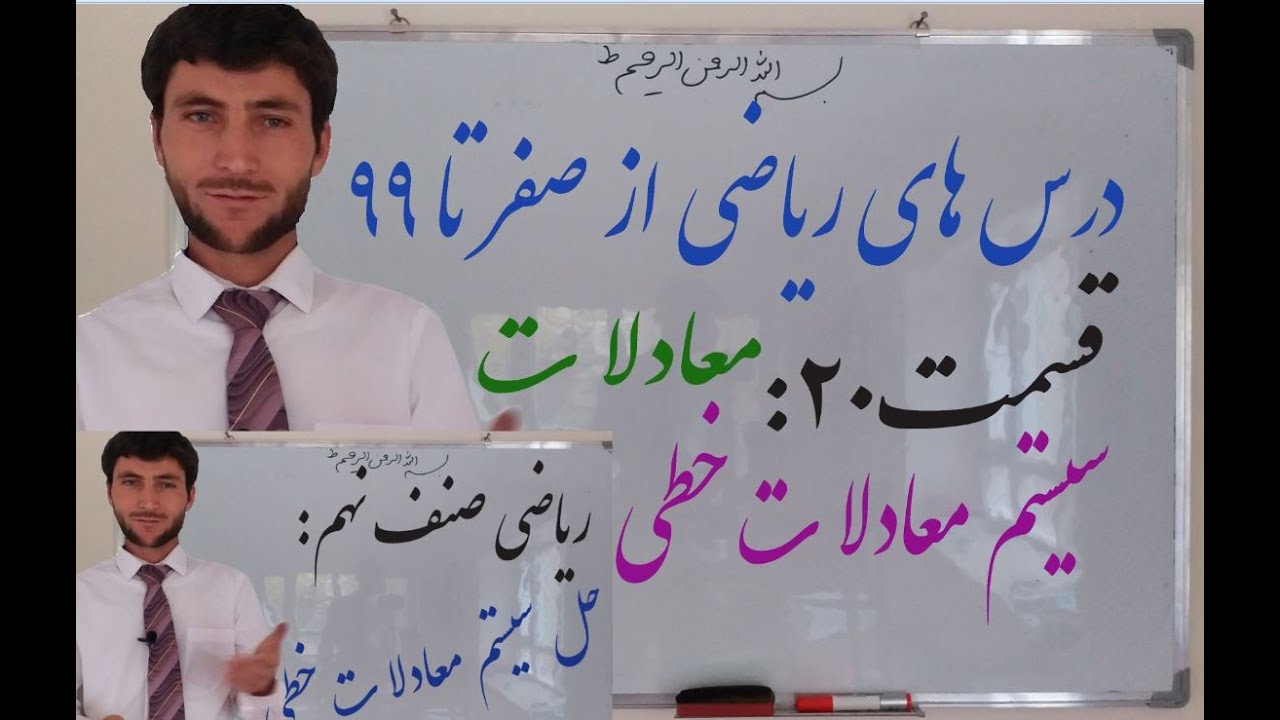 بسم الله الرحمن الرحیم ط
درس های ریاضی از صفر تا ۹۹
قسمت ۲۰: معادلات
سیستم معادلات خطی
بسم الله الرحمن الرحیم ط
ریاضی صنف نهم:
حل سیستم معادلات خطی